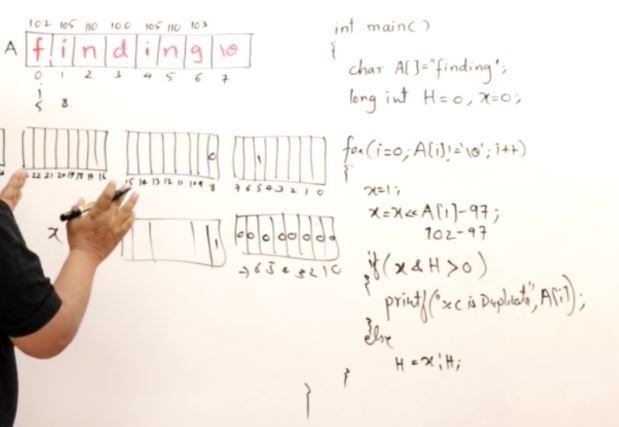 102 105 110 100 105 110 103
A f i n d i n g \0
0 1 2 3 4 5 6 7
i
5 8
22 21 20 19 18 17 16
15 14 13 12 11 10 9 8
7 6 5 4 3 2 1 0
0
1
x
1
0 0 0 0 0 0 0 0
7 6 5 4 3 2 1 0
int main()
{
char A[]="finding";
long int H=0, x=0;
for(i=0; A[i]!='\0'; i++)
{
x=1;
x=x<<A[i]-97;
102-97
if(x&H>0)
{
printf("%c is Duplicate", A[i]);
}
else
H=x|H;
}
}